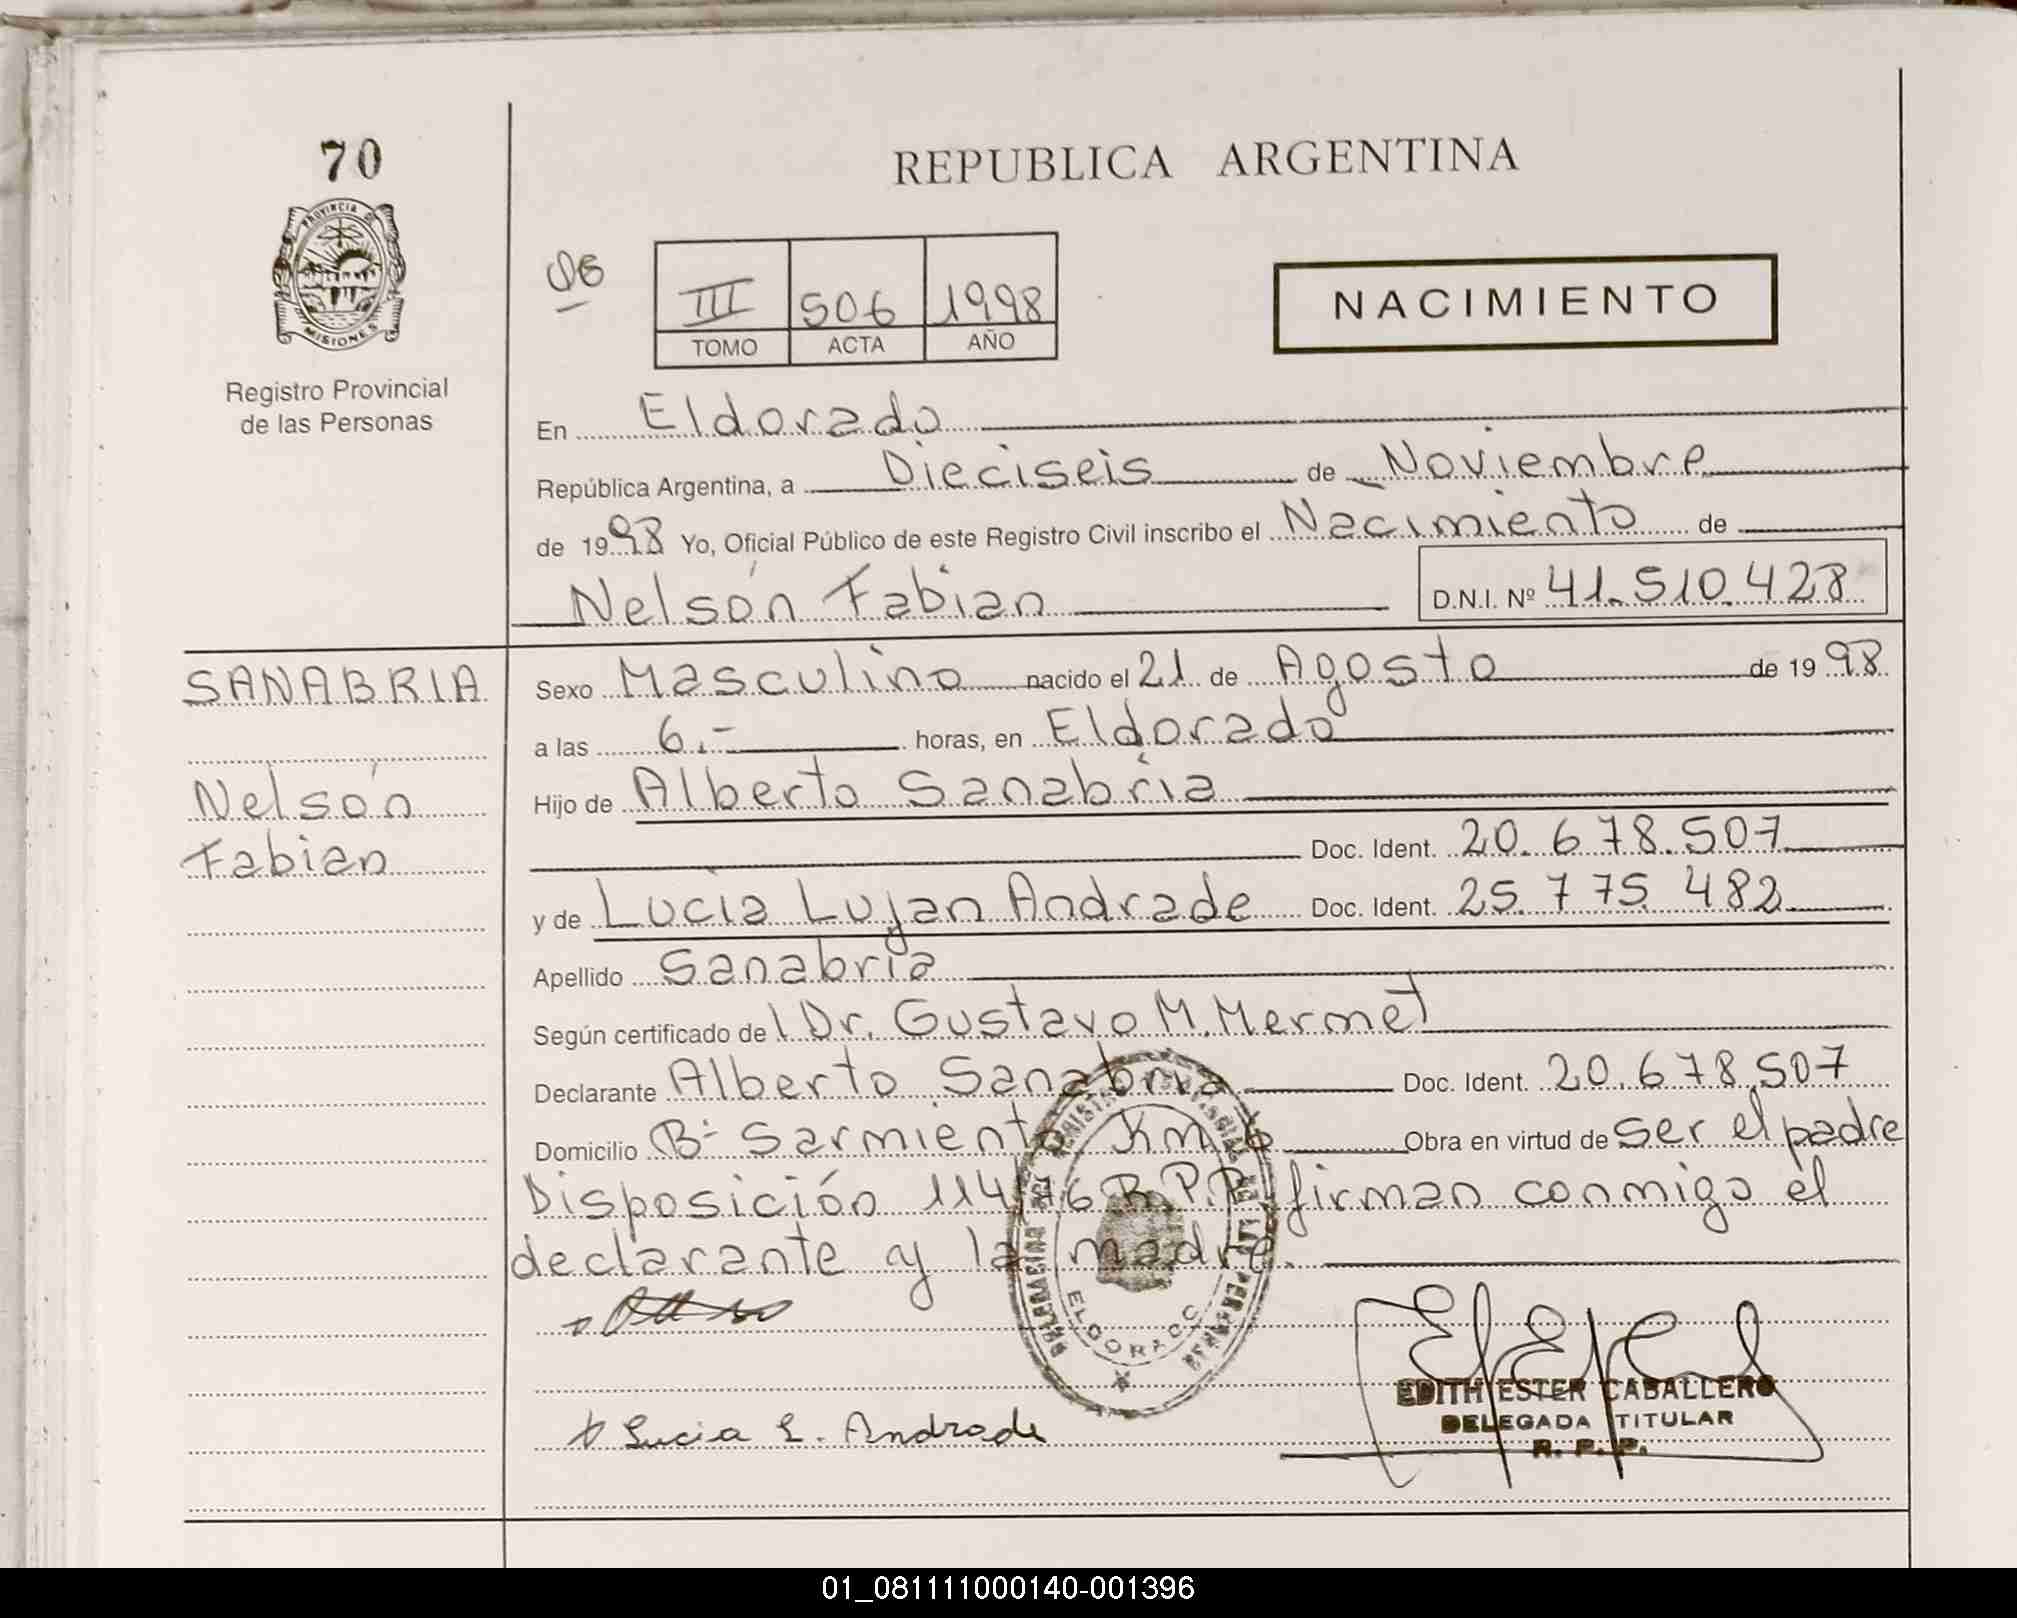 70
REPUBLICA ARGENTINA
PROVINCIA DE
MISIONES
Registro Provincial
de las Personas
III 506 1998
TOMO ACTA AÑO
NACIMIENTO
En Eldorado
República Argentina, a Dieciseis de Noviembre
de 1998 Yo, Oficial Público de este Registro Civil inscribo el Nacimiento de
Nelsón Fabian D.N.I. Nº 41.510.428
SANABRIA
Nelsón
Fabian
Sexo Masculino nacido el 21 de Agosto de 1998
a las 6.- horas, en Eldorado
Hijo de Alberto Sanabria
Doc. Ident. 20.678.507
y de Lucia Lujan Andrade Doc. Ident. 25.775.482
Apellido Sanabria
Según certificado de Dr. Gustavo M. Mermet
Declarante Alberto Sanabria Doc. Ident. 20.678.507
Domicilio Bº Sarmiento Km Obra en virtud de ser el padre
Disposición 114/76 R.P.P. firman conmigo el
declarante y la madre.
DELEGACION DEL REGISTRO PROVINCIAL DE LAS PERSONAS
ELDORADO
Lucia L. Andrade
EDITH ESTER CABALLERO
DELEGADA TITULAR
R. P. P.
01_081111000140-001396